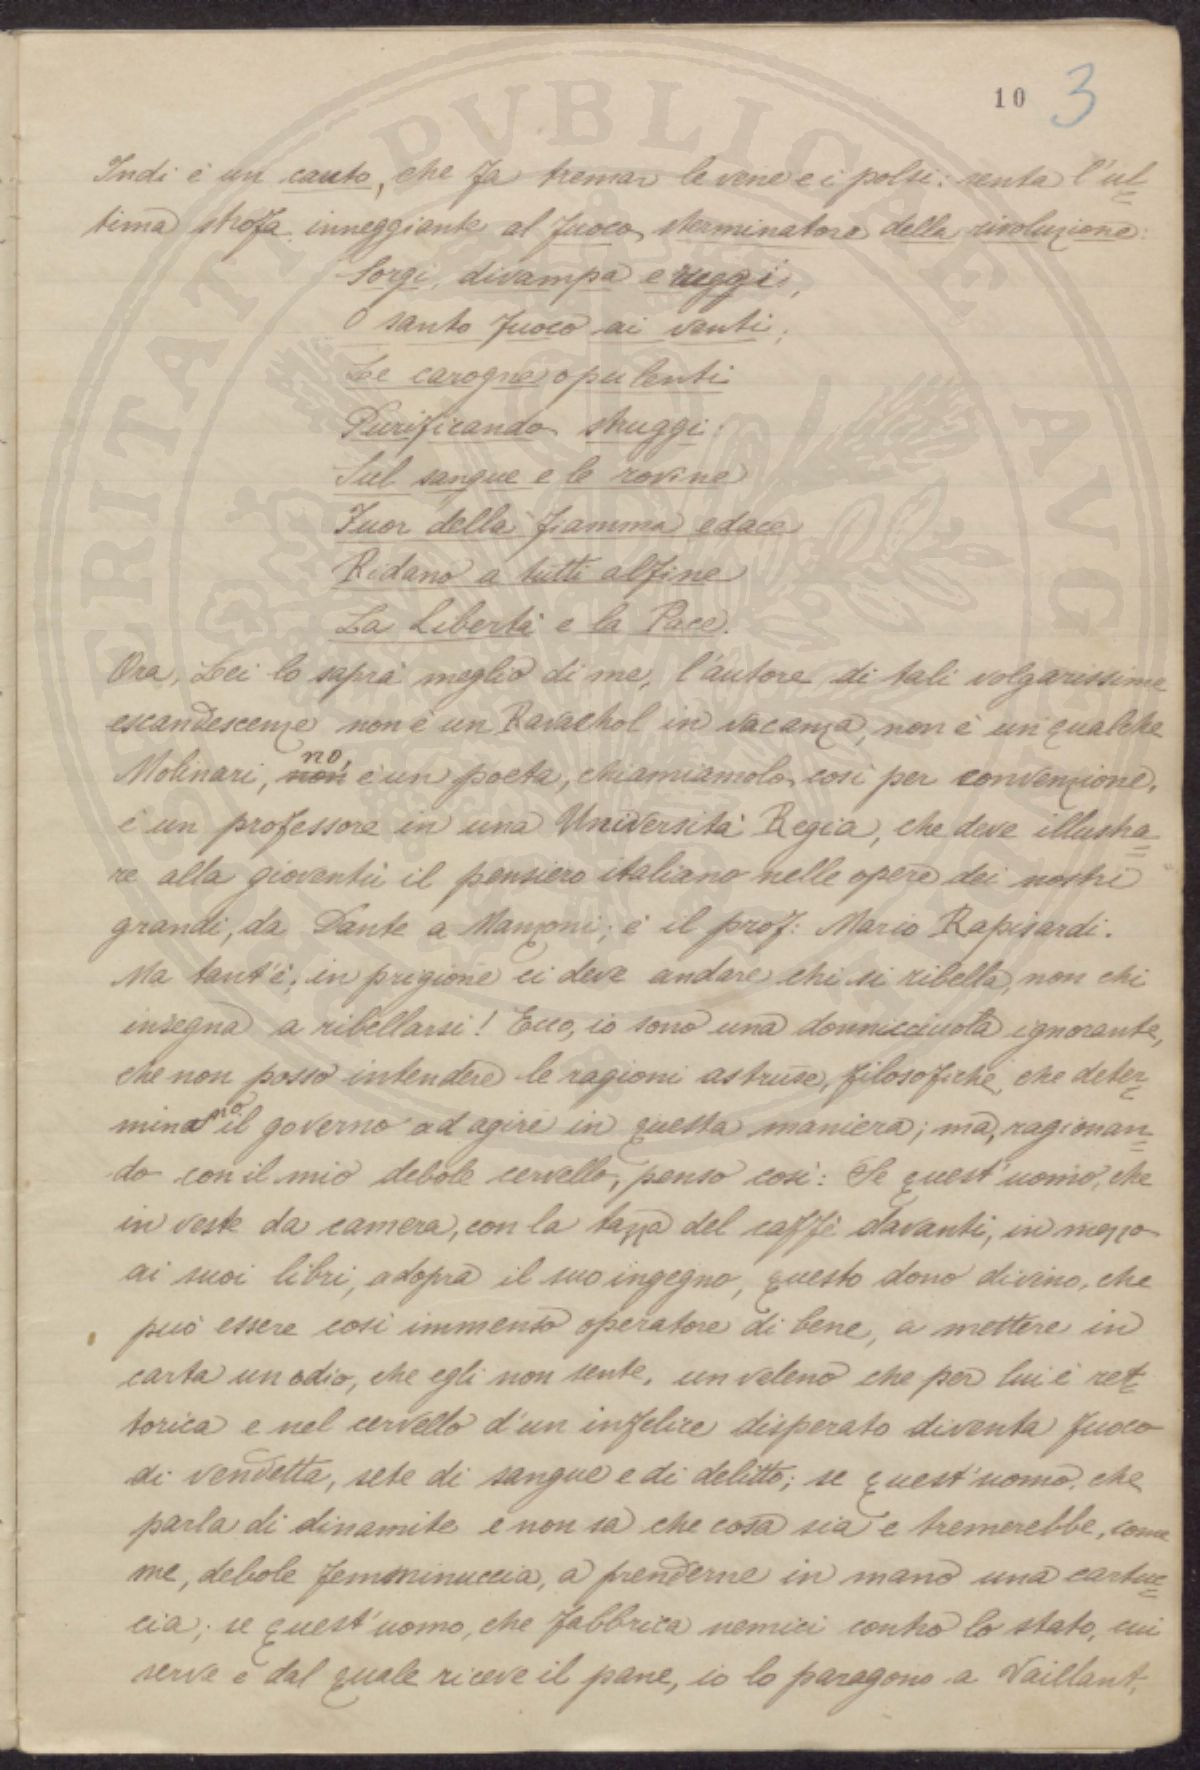 10 3
Indi è un canto, che fa tremar le vene e i polsi: senta l'ul=
tima strofa inneggiante al fuoco sterminatore della rivoluzione:
Sorgi, divampa e ruggi,
O santo fuoco ai venti;
Le carogne opulenti
Purificando struggi:
Sul sangue e le rovine
Fuor della fiamma edace
Ridano a tutti alfine
La Libertà e la Pace.
Ora, Lei lo saprà meglio di me, l'autore di tali volgarissime
escandescenze non è un Ravachol in vacanza, non è un qualche
Molinari, non no, è un poeta, chiamiamolo così per convenzione,
è un professore in una Università Regia, che deve illustra=
re alla gioventù il pensiero italiano nelle opere dei nostri
grandi, da Dante a Manzoni; è il prof: Mario Rapisardi.
Ma tant'è; in prigione ci deve andare chi si ribella, non chi
insegna a ribellarsi! Ecco, io sono una donnicciuola ignorante,
che non posso intendere le ragioni astruse, filosofiche, che deter=
minano il governo ad agire in questa maniera; ma, ragionan=
do con il mio debole cervello, penso così: Se quest'uomo, che
in veste da camera, con la tazza del caffè davanti, in mezzo
ai suoi libri, adopra il suo ingegno, questo dono divino, che
può essere così immenso operatore di bene, a mettere in
carta un odio, che egli non sente, un veleno che per lui è ret=
torica e nel cervello d'un infelice disperato diventa fuoco
di vendetta, sete di sangue e di delitto; se quest'uomo, che
parla di dinamite e non sa che cosa sia e tremerebbe, come
me, debole femminuccia, a prenderne in mano una cartuc=
cia; se quest'uomo, che fabbrica nemici contro lo stato, cui
serve e dal quale riceve il pane, io lo paragono a Vaillant,
VERITATI PVBLICAE AVG